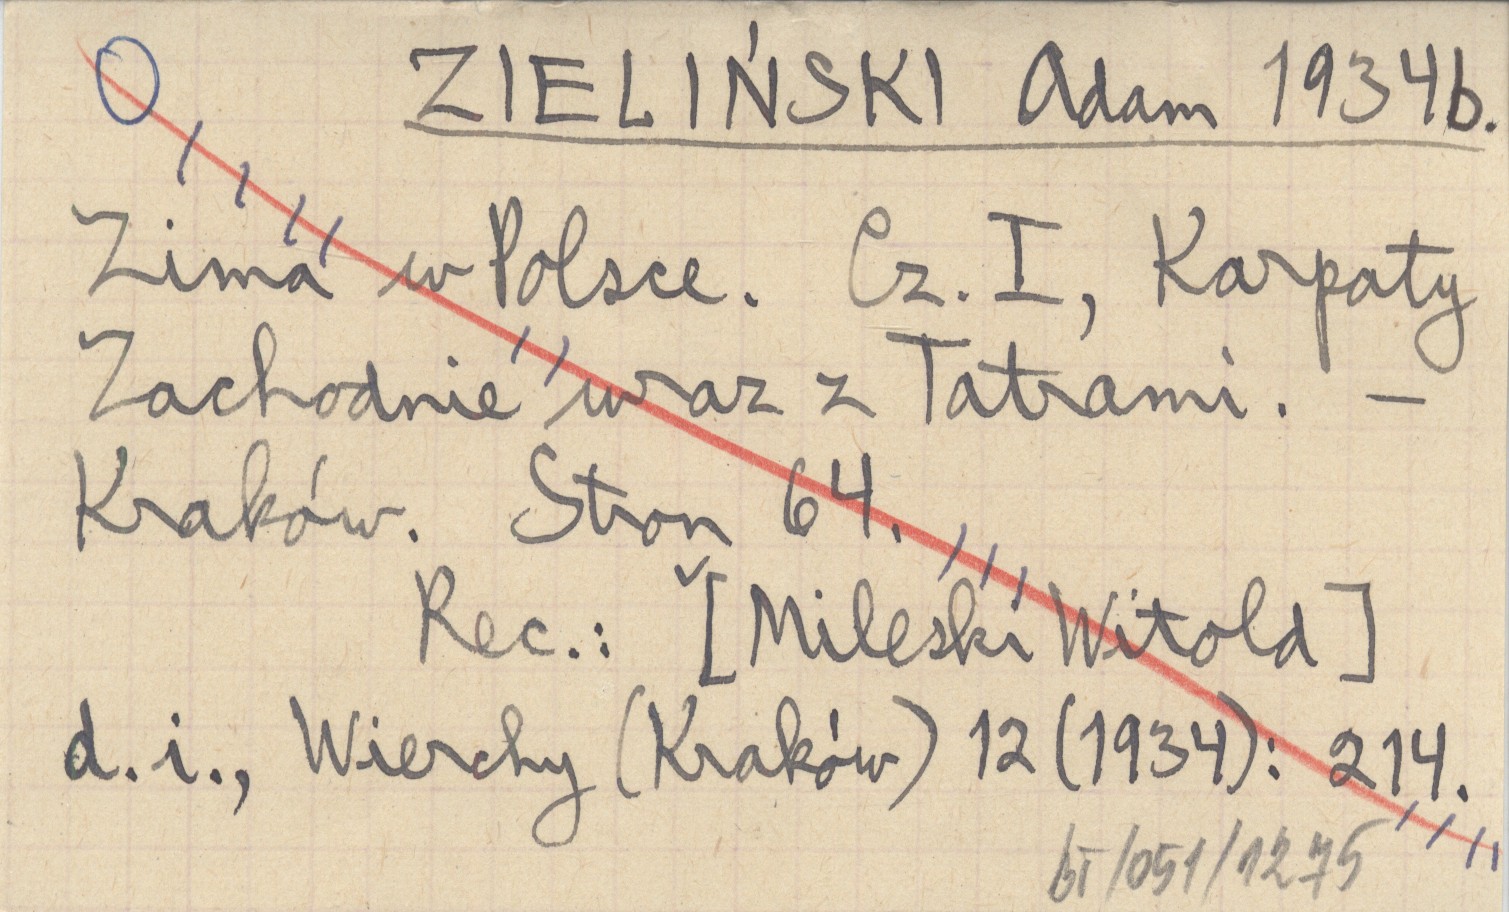 O ZIELIŃSKI Adam 1934b.
Zima w Polsce. Cz. I, Karpaty
Zachodnie wraz z Tatrami. –
Kraków. Stron 64.
Rec.: [Mileski Witold]
d. i., Wierchy (Kraków) 12 (1934): 214.
bI/051/1275